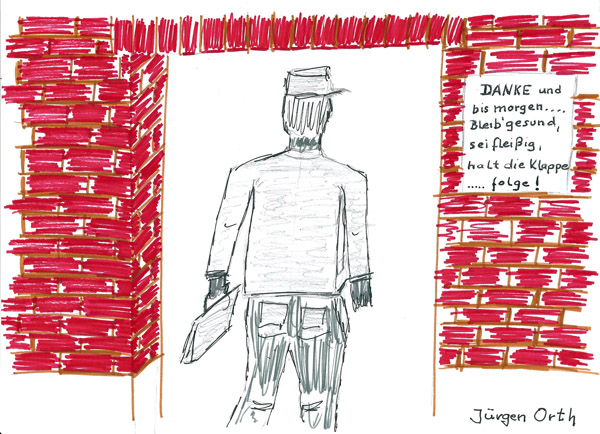 DANKE und
bis morgen....
Bleib' gesund,
sei fleißig,
halt die Klappe
..... folge!
Jürgen Orth